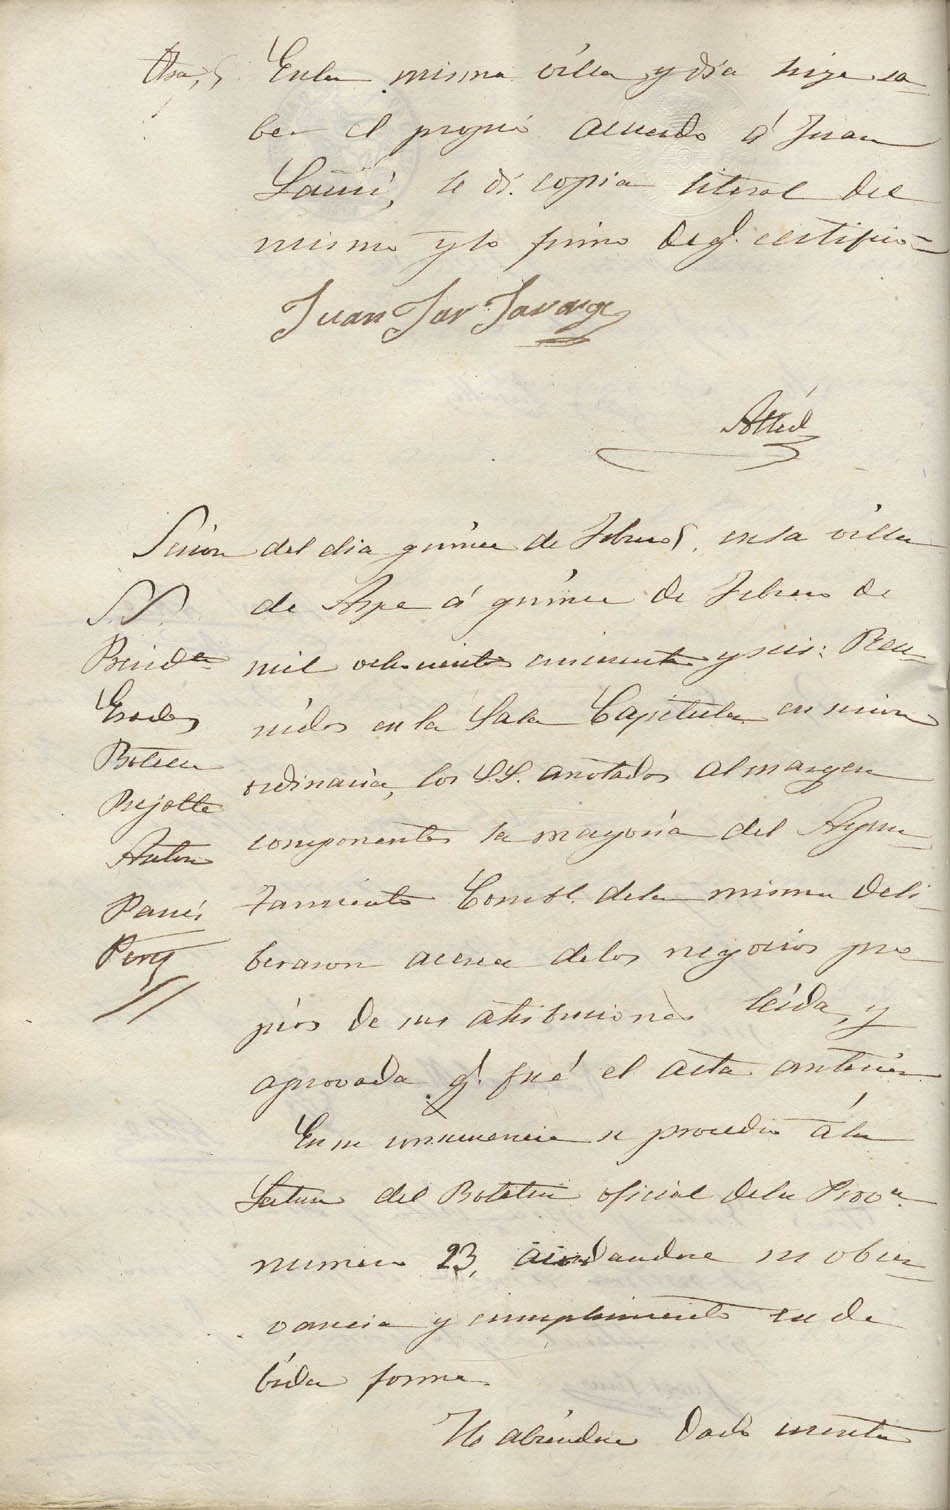 Otra, En la misma villa y dia hize sa-
ber el propio acuerdo á Juan
le dí copia literal del
mismo y lo firma de q.e certifico=
Juan
Sesion del dia quince de Febrero. en la villa
SS. de Aspe á quince de Febrero de
Presid.te mil ochocientos cincuenta y seis: Reu-
nidos en la Sala Capitular en sesion
Botella ordinaria, los SS. anotados al margen
componentes la mayoria del Ayun
Anton
tamiento Const.l de la misma deli-
Perez beraron acerca de los negocios pro
pios de sus atribuciones leida, y
aprovada q.e fué el acta anterior.
En su consecuencia se procedio á la
Letura del Boletin oficial de la Prov.a
numero 23, acordandose su obser-
vancia y cumplimiento en de
bida forma
Habiendose dado cuenta